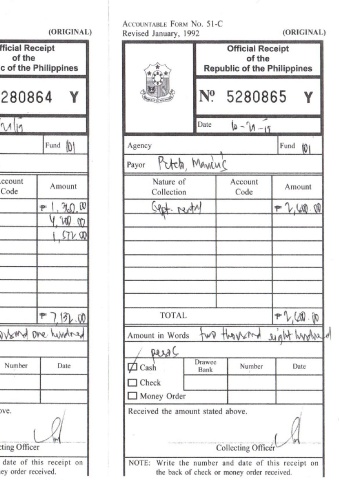 (ORIGINAL)
fficial Receipt
of the
c of the Philippines
280864 Y
Fund 101
ccount
Code
Amount
₱ 1,360.00
4,200.00
1,572.00
₱ 7,132.00
one hundred
Number Date
ove.
cting Officer
date of this receipt on
ey order received.
ACCOUNTABLE FORM No. 51-C
Revised January, 1992 (ORIGINAL)
Official Receipt
of the
Republic of the Philippines
Nº 5280865 Y
Date
Agency Fund 101
Payor
Nature of
Collection
Account
Code
Amount
Sept. rental ₱ 2,600.00
TOTAL ₱ 2,600.00
Amount in Words two thousand eight hundred
pesos
Cash
Drawee
Bank
Number
Date
Check
Money Order
Received the amount stated above.
Collecting Officer
NOTE: Write the number and date of this receipt on
the back of check or money order received.